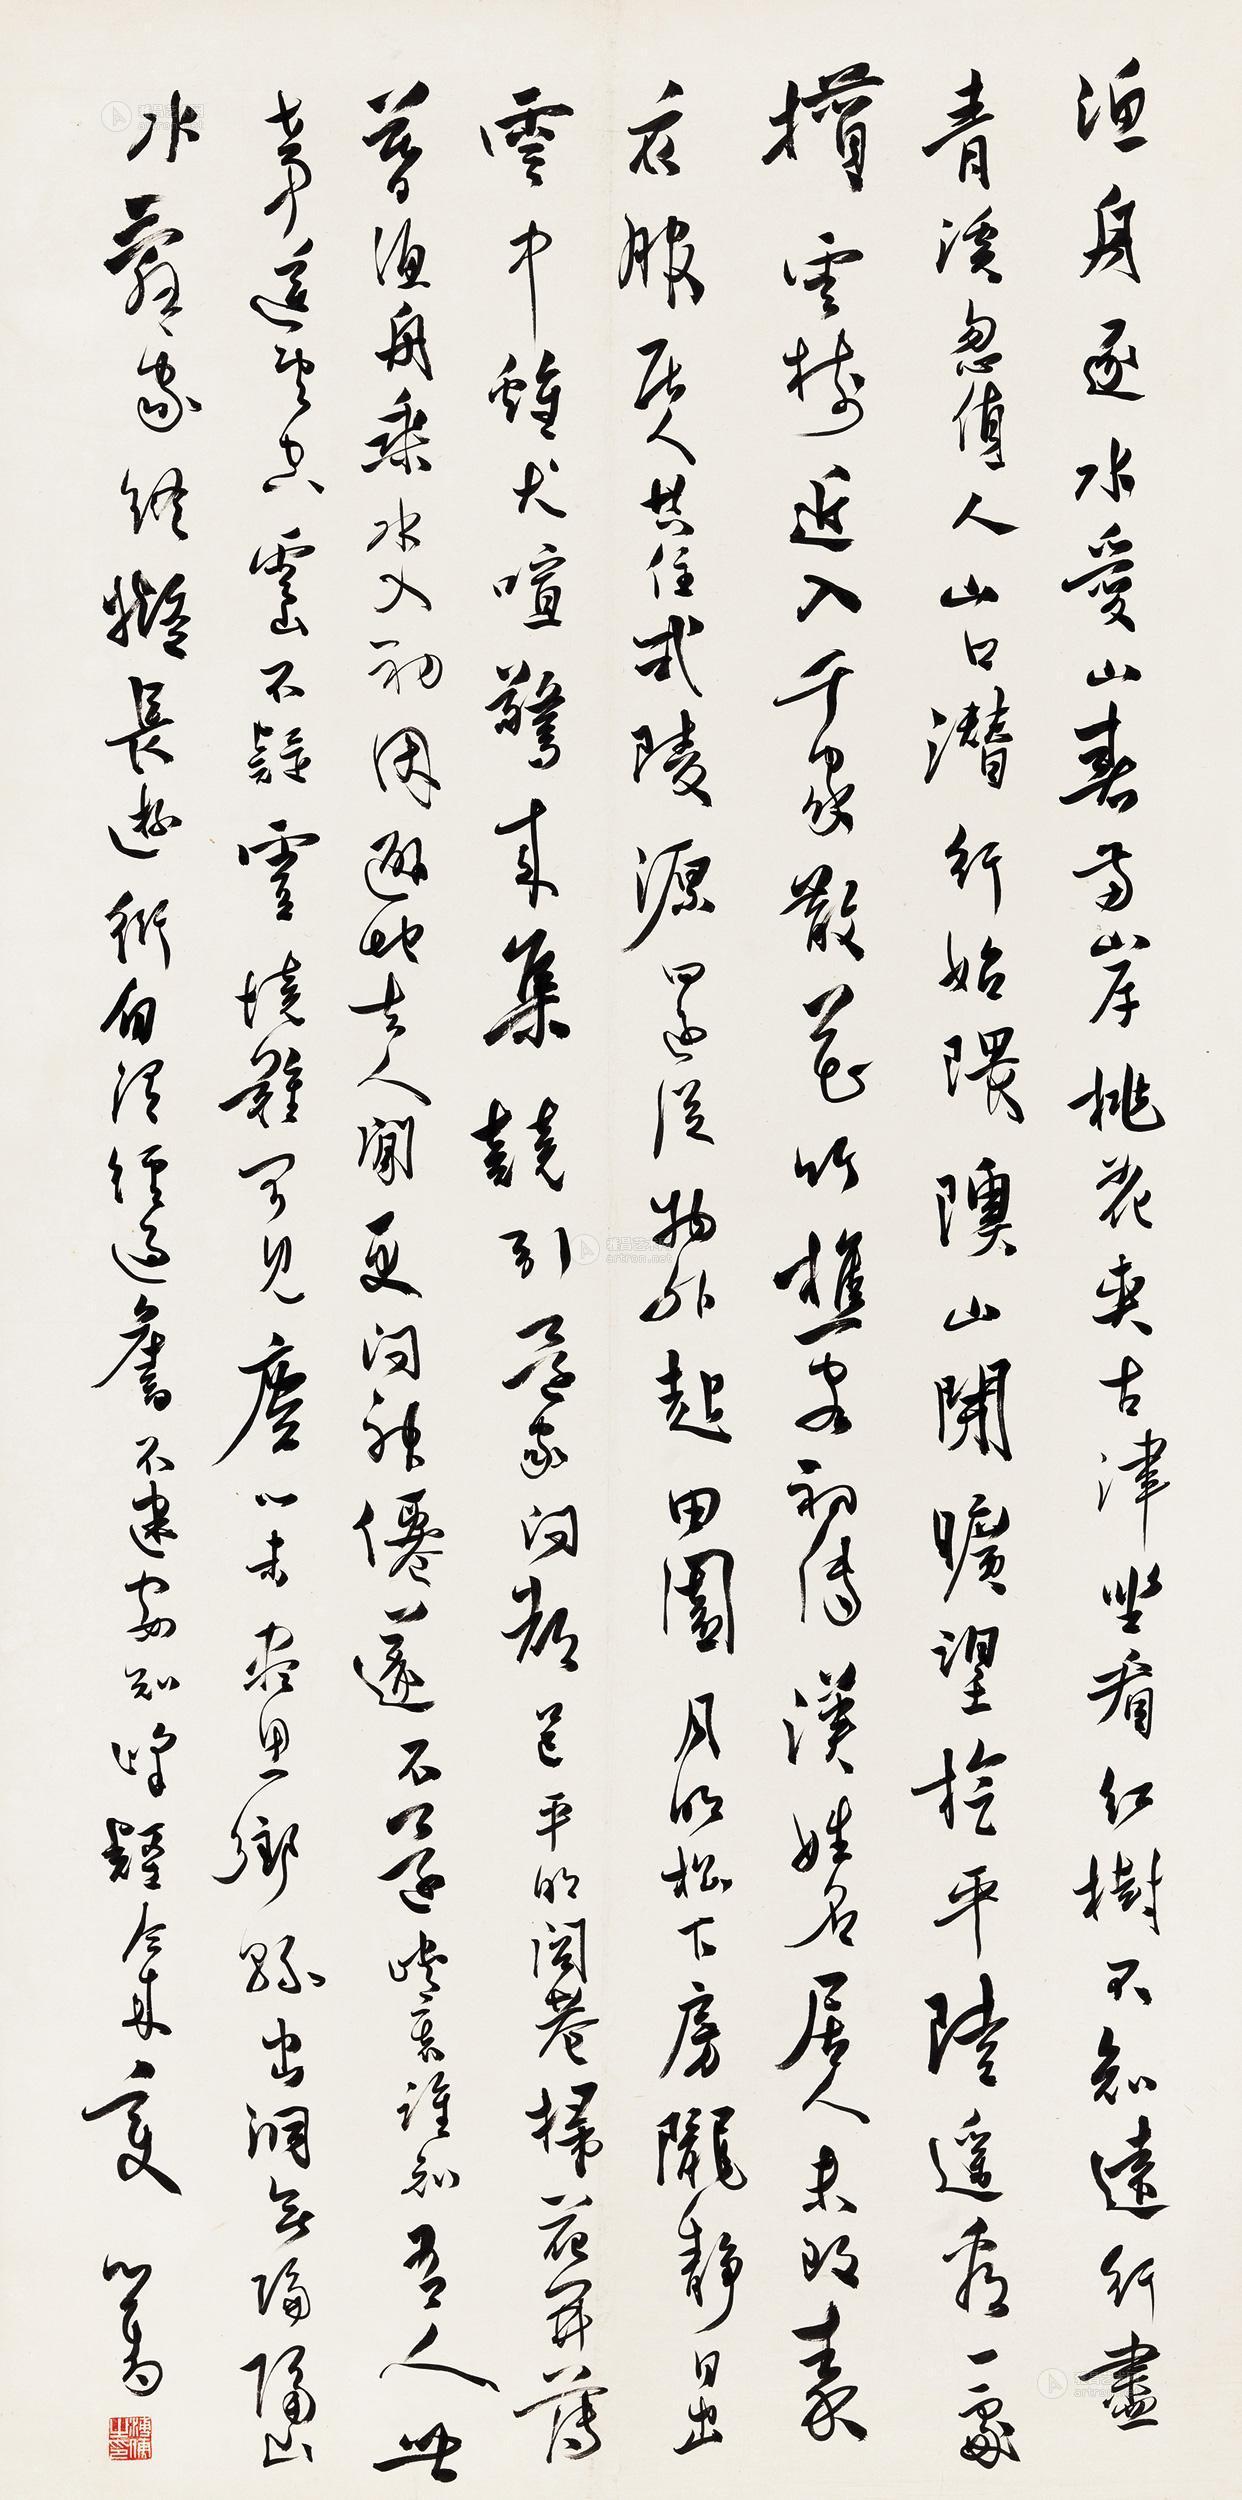 漁舟逐水愛山春兩岸桃花夾古津坐看紅樹不知遠行盡
青溪忽值人山口潛行始隈隩山開曠望旋平陸遙看一處
攢雲樹近入千家散花竹樵客初傳漢姓名居人未改秦
衣服居人共住武陵源還從物外起田園月明松下房櫳靜日出
雲中雞犬喧驚來集競引還家問都邑平明閭巷掃花開薄
暮漁舟乘水入初因避地去人間更問神僊遂不還峽裏誰知有人世
中遙望空雲山不疑靈境難可見塵心未盡思鄉縣出洞無論隔山
水辭家終擬長遊衍自謂經過舊不迷安知峰壑今來變 心畬